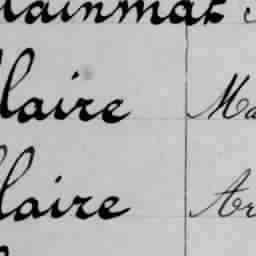 lainmat
laire Ma
laire Ar